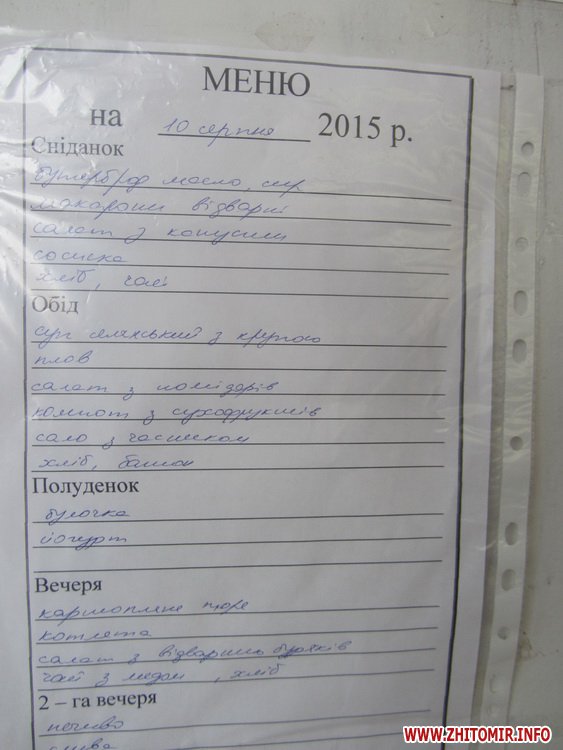 МЕНЮ
на 10 серпня 2015 р.
Сніданок
бутерброд масло, сир
макарони відварні
салат з капусти
сосиска
хліб, чай
Обід
суп селянський з крупою
плов
салат з помідорів
компот з сухофруктів
сало з часником
хліб, батон
Полуденок
булочка
йогурт
Вечеря
картопляне пюре
котлета
салат з відварних буряків
чай з медом, хліб
2 – га вечеря
печиво
слива
WWW.ZHITOMIR.INFO